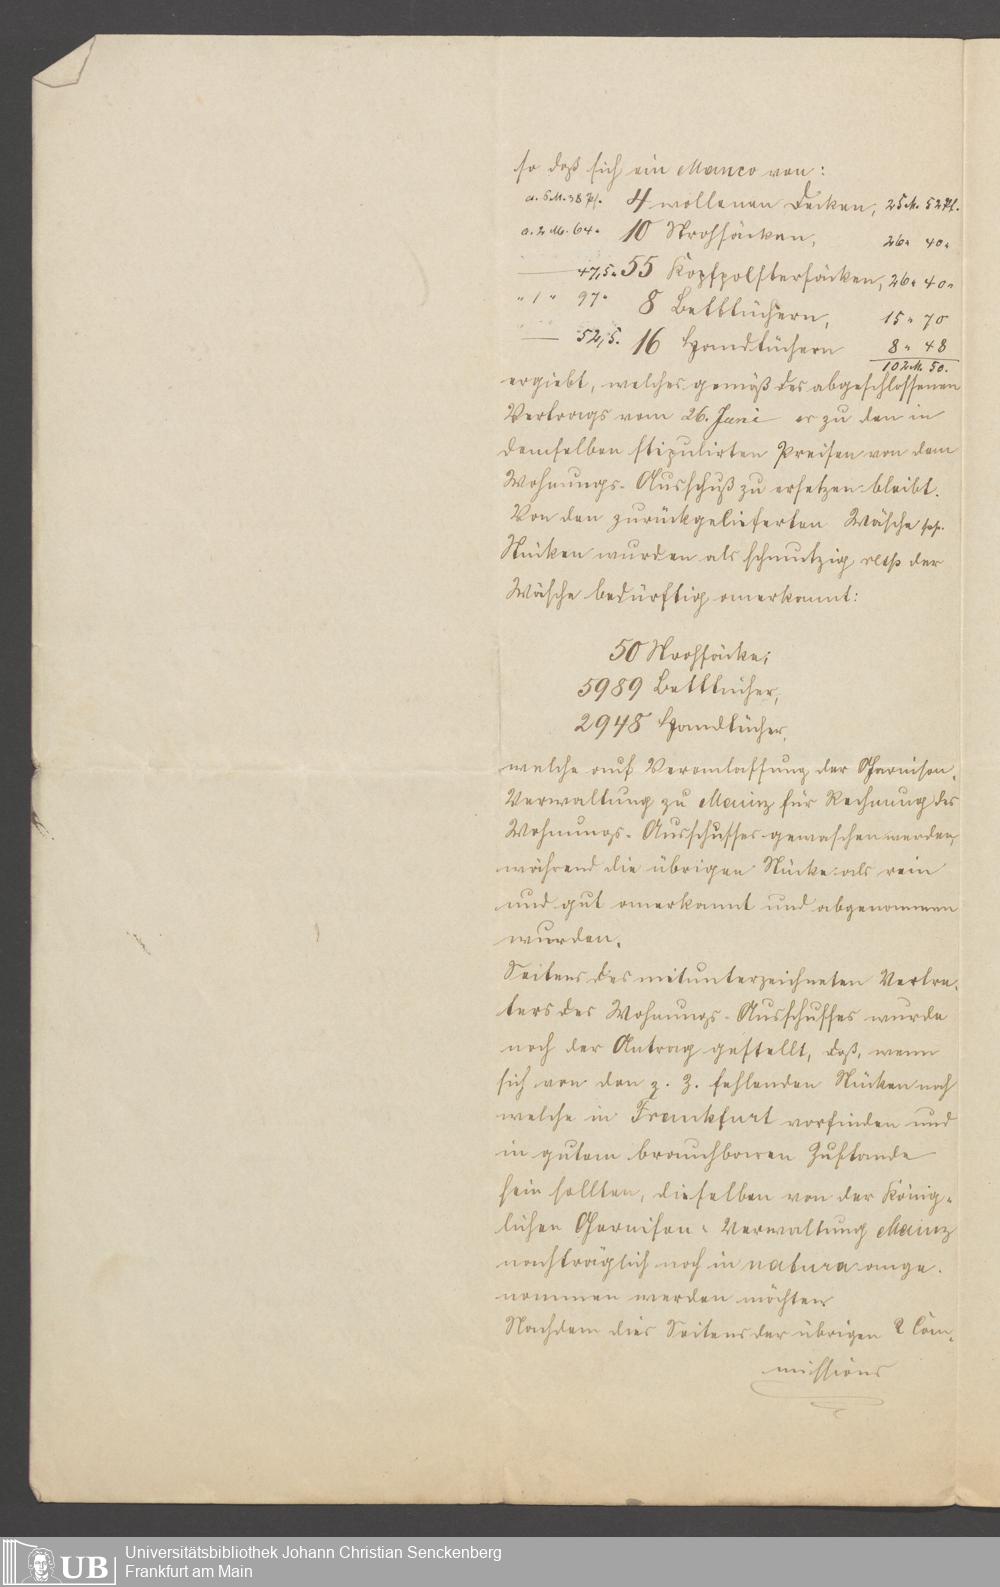 so daß sich ein Manco von:
a. 6 M. 38 Pf. 4 wollenen Decken, 25 M. 52 Pf.
a. 2 M. 64 " 10 Strohsäcken, 26 " 40 "
47,5 " 55 Kopfpolstersäcken, 26 " 40 "
" 1 " 97 " 8 Betttüchern, 15 " 70
52,5 " 16 Handtüchern 8 " 48
102 M. 50.
ergiebt, welches gemäß des abgeschlossenen
Vertrags vom 26. Juni cr zu den in
demselben stipulirten Preisen von dem
Wohnungs-Ausschuß zu ersetzen bleibt.
Von den zurückgelieferten Wäsche pp.
Stücken wurden als schmutzig resp der
Wäsche bedürftig anerkannt:
50 Strohsäcke;
5989 Betttücher,
2948 Handtücher,
welche auf Veranlassung der Garnison-
Verwaltung zu Mainz für Rechnung des
Wohnungs-Ausschusses gewaschen werden,
während die übrigen Stücke als rein
und gut anerkannt und abgenommen
wurden.
Seitens des mitunterzeichneten Vertre-
ters des Wohnungs-Ausschusses wurde
noch der Antrag gestellt, daß, wenn
sich von den z. Z. fehlenden Stücken noch
welche in Frankfurt vorfinden und
in gutem brauchbaren Zustande
sein sollten, dieselben von der König-
lichen Garnison-Verwaltung Mainz
nachträglich noch in natura ange-
nommen werden möchten.
Nachdem dies Seitens der übrigen 2 Com-
missions
UB Universitätsbibliothek Johann Christian Senckenberg
Frankfurt am Main